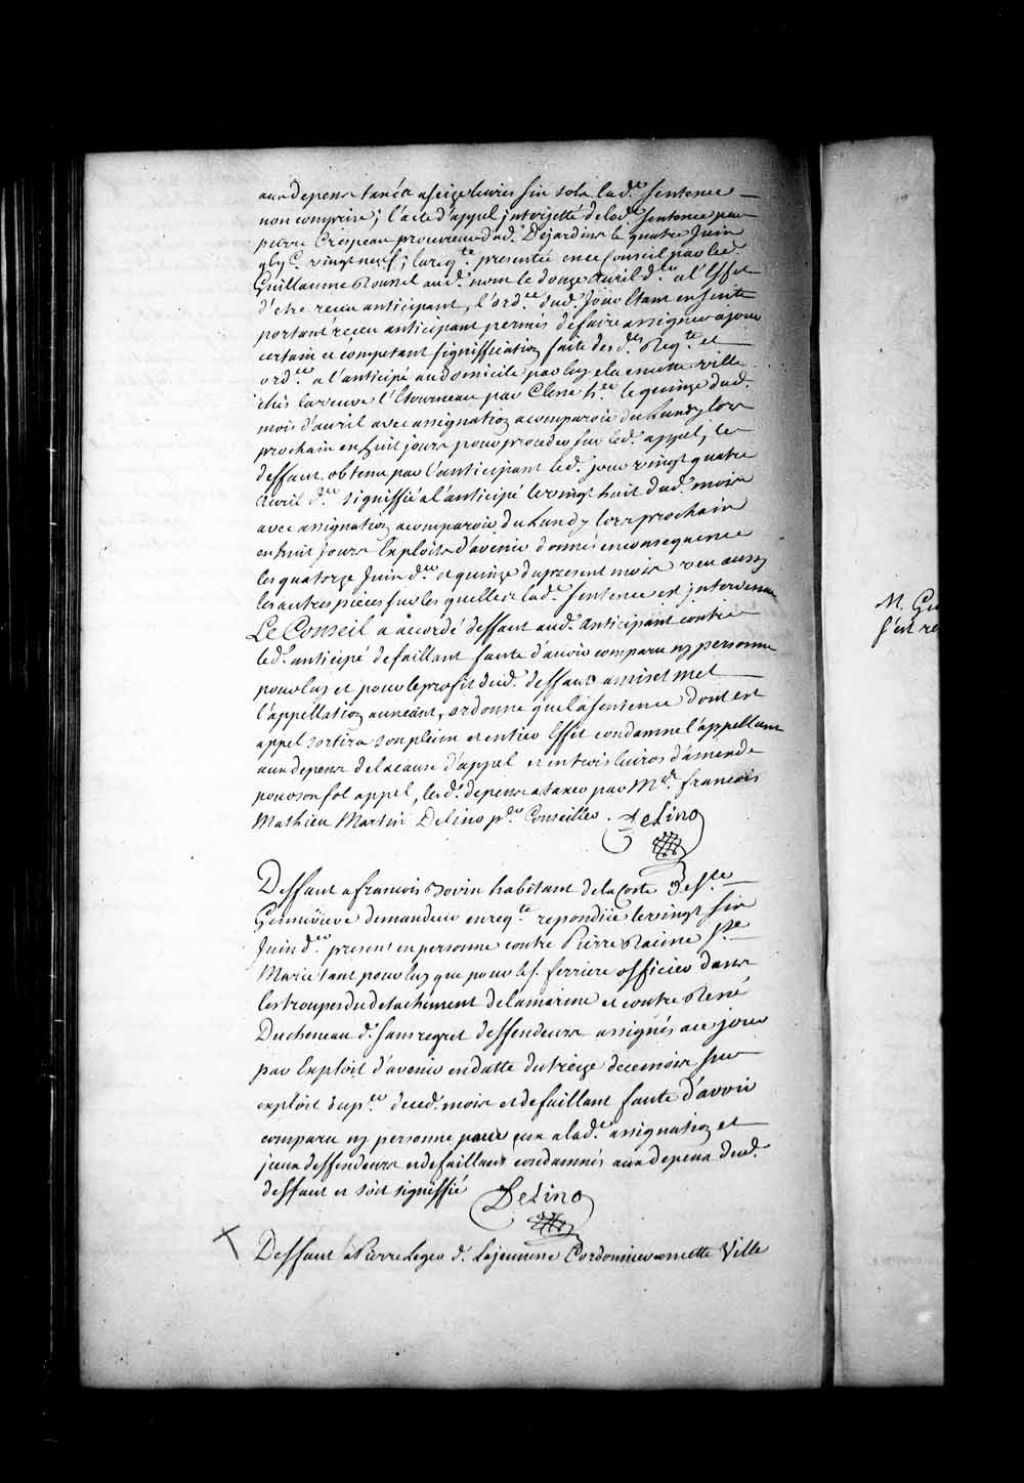 aux depens taxés a seize livres six sols lad.e sentence
non comprise ; l'acte d'appel interjetté de lad. sentence par
pierre Crespeau procureur dud. Dejardins le quatre Juin
vingt neuf ; la req.te presentée en ce Conseil par led.
Guillaume Roussel aud. nom le douze avril d.er a l'Effet
d'etre receu anticipant, l'ord.ce dud. jour Etant ensuite
portant receu anticipant permis de faire assigner a jour
certain et competant signiffication faite des d.es Req.te et
ord.ce a l'anticipé au domicile par luy elu en cette ville
chés la veuve l'Etourneau par Clesse h.er le quinze dud.
mois d'avril avec assignation a comparoir du Lundy lors
prochain en huit jours pour proceder sur led. appel, le
deffaut obtenu par l'anticipant led. jour vingt quatre
avril d.er signiffié a l'anticipé le vingt huit dud. mois
avec assignation a comparoir du Lundy lors prochain
en huit jours Exploits d'avenir donnés en consequence
les quatorze Juin d.er et quinze du present mois veu aussy
les autres pieces sur les quelles lad. sentence est intervenue
Le Conseil a accordé deffaut aud. anticipant contre
led. anticipé defaillant faute d'avoir comparu ny personne
pour luy et pour le profit dud. deffaut a mis et met
l'appellation au neant, ordonne que la sentence dont est
appel sortira son plein et entier Effet condamne l'appellant
aux depens de la cause d'appel et en trois livres d'amende
pour son fol appel, les d. depens a taxer par M.e francois
Mathieu Martin Delino p.er Conseiller. Delino
Deffaut a francois Bovin habitant de la Coste de S.te
Genneviève demandeur en req.te repondüe le vingt six
Juin d.er present en personne contre Pierre Racine S.te
Marie tant pour luy que pour le S. ferriere officier dans
les troupes du detachement de la marine et contre René
Ducheneau d. sansregret deffendeurs assignés a ce jour
par Exploit d'avenir en datte du treize de ce mois sur
exploit du p.er de ced. mois et defaillant faute d'avoir
comparu ny personne pour eux a lad.e assignation et
iceux deffendeurs et defaillans condamnés aux depens dud.
deffaut et soit signiffié Delino
X Deffaut a Pierre Leger d. Lajeunesse Cordonnier en cette Ville
M. Gu
s'est re